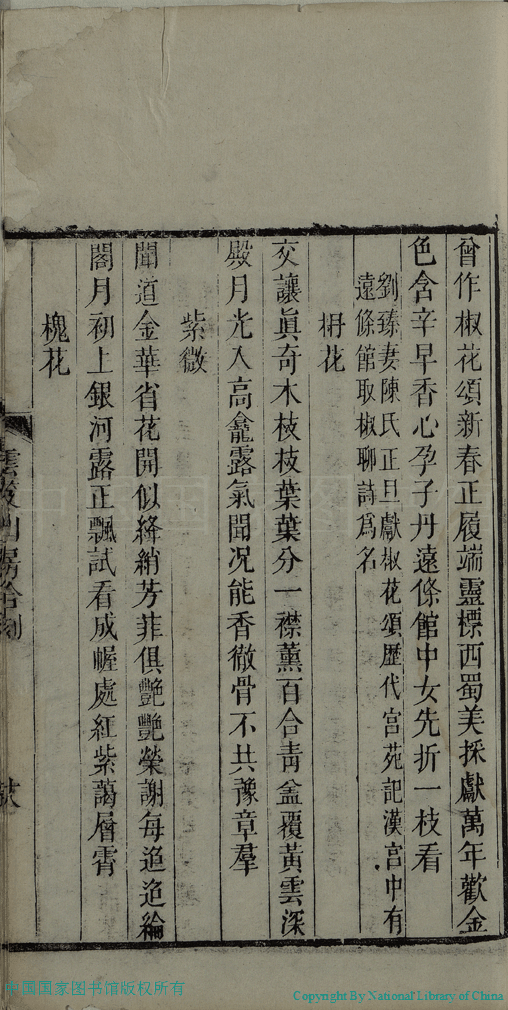 曾作椒花頌新春正履端靈標西蜀美採獻萬年歡金
色含辛早香心孕子丹遠條館中女先折一枝看
劉臻妻陳氏正旦獻椒花頌歷代宫苑記漢宫中有
遠條館取椒聊詩爲名
枏花
交讓眞奇木枝枝葉葉分一襟薰百合靑盒覆黃雲深
殿月光入高龕露氣聞况能香徹骨不共豫章羣
紫薇
聞道金華省花開似絳綃芳菲俱艷艷榮謝每迨迨綸
閣月初上銀河露正飄試看成幄處紅紫藹層霄
槐花
山房合刻
中国国家图书馆版权所有
Copyright By National Library of China